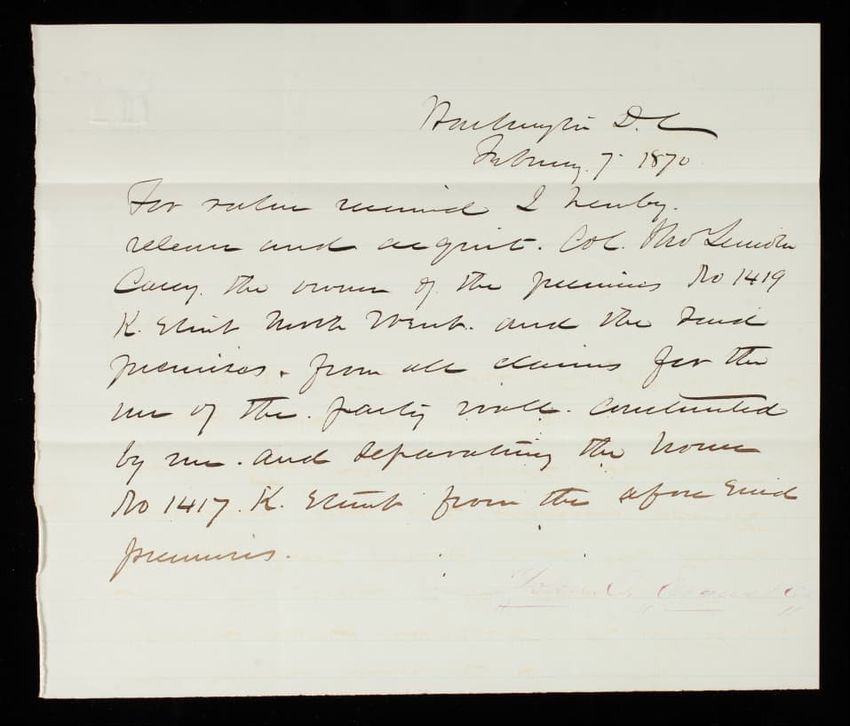 Washington D.C
February. 7. 1870.
For value received I hereby.
release and acquit. Col. Thos Lincoln
Casey. the owner of the premises No 1419
K. Street North West. and the said
premises. from all claims for the
use of the. party wall. constructed
by me. and separating the house
No 1417. K. Street from the afore said
premises.